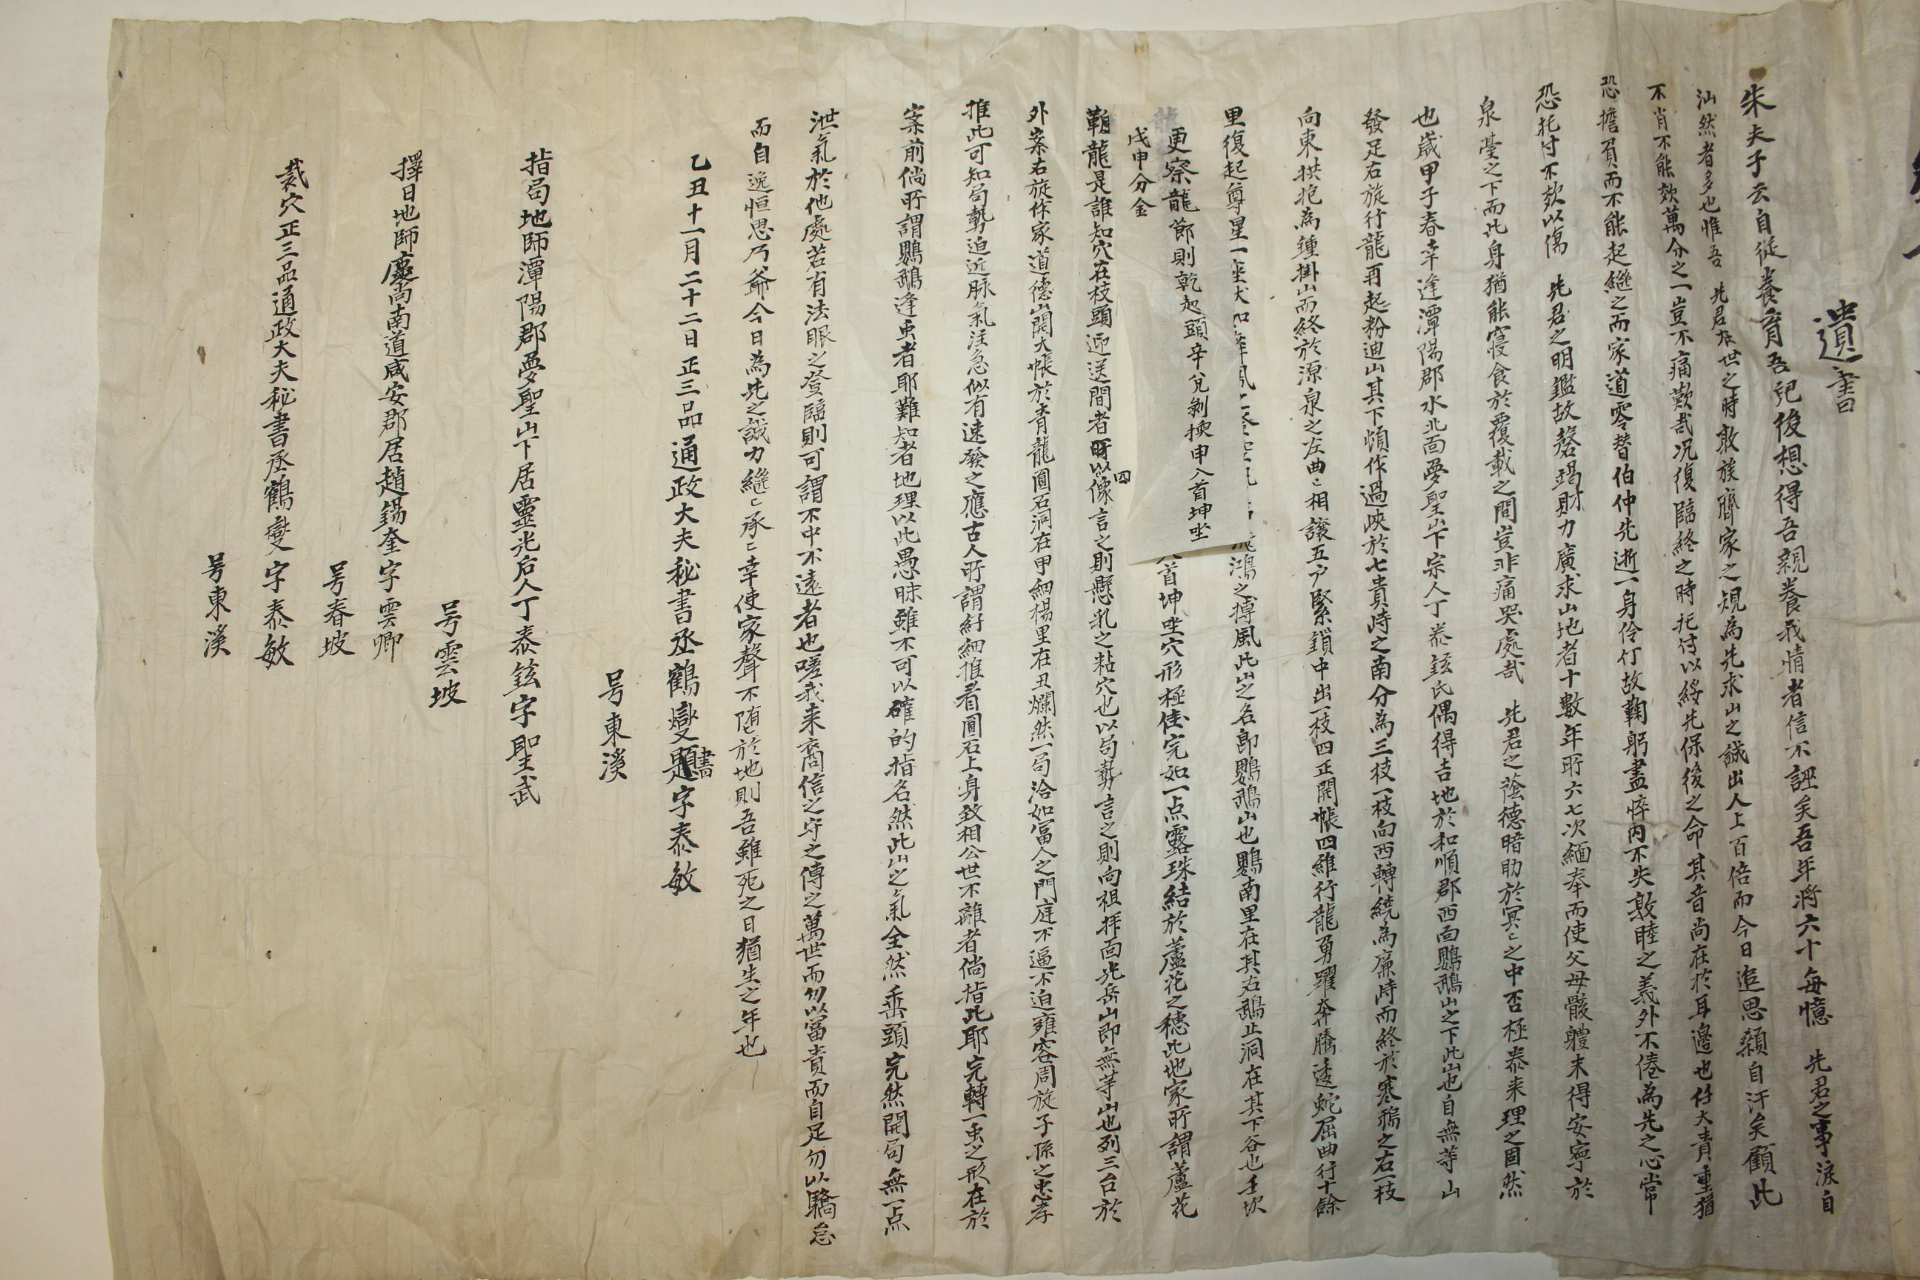 遺書
朱夫子云自從養育吾兒後想得吾親養我情者信不誣矣吾年將六十每憶 先君之事淚自
汕然者多也惟吾 先君在世之時敦族齊家之規為先求山之誠出人上百倍而今日追思顙自汗矣顧此
不肖不能效萬分之一豈不痛歎哉况復臨終之時托付以綏先保後之命其音尚在於耳邊也任大責重猶
恐擔負而不能起繼之而家道零替伯仲先逝一身伶仃故鞠躬盡悴內不失敦睦之義外不倦為先之心常
恐托付不效以傷 先君之明鑑故罄竭財力廣求山地者十數年所六七次緬奉而使父母骸體未得安寧於
泉臺之下而此身猶能寢食於覆載之間豈非痛哭處哉 先君之蔭德暗助於冥〻之中否極泰來理之固然
也歲甲子春幸逢潭陽郡水北面夢聖山下宗人丁泰鉉氏偶得吉地於和順郡西面鸚鵡山之下此山也自無等山
發足右旋行龍再起粉迪山其下頓作過峽於七貴峙之南分為三枝一枝向西轉繞為廉峙而終於寒鴉之右一枝
向東拱抱為鍾掛山而終於源泉之左曲〻相讓五户緊鎖中出一枝四正開帳四維行龍勇躍奔騰逶蛇屈曲行十餘
里復起尊星一座 鴻之搏風此山之名即鸚鵡山也鸚南里在其右鵡止洞在其下谷也壬坎
龍
更察龍節則乾起頭辛兌剝換申入首坤坐
戊申分金
首坤坐穴形極佳完如一点露珠結於蘆花之穗此地家所謂蘆花
鞘龍是誰知穴在枝頭迎送間者所以像言之則懸乳之粘穴也以局勢言之則向祖拜面光岳山即無等山也列三台於
四
外案右旋作家道德山開大帳於青龍圓石洞在甲細楊里在丑爛然一局洽如富人之門庭不逼不迫雍容周旋子孫之忠孝
推此可知局勢迫近脉氣注急似有速發之應古人所謂紆細推看圓石上身致相公世不離者倘指此耶完轉一虫之形在於
案前倘所謂鸚鵡逢虫者耶難知者地理以此愚昧雖不可以確的指名然此山之氣全然垂頭完然開局無一点
洪氣於他處若有法眼之登臨則可謂不中不遠者也嗟我來裔信之守之傳之萬世而勿以富貴而自足勿以驕怠
而自逸恒思乃爺今日為先之誠力繼〻承〻幸使家聲不陁於地則吾雖死之日猶生之年也
乙丑十一月二十二日正三品通政大夫秘書丞鶴燮題書字泰敏
号東溪
指局地師潭陽郡夢聖山下居靈光后人丁泰鉉字聖武
号雲坡
擇日地師慶尚南道咸安郡居趙錫奎字雲卿
号春坡
裁穴正三品通政大夫秘書丞鶴燮字泰敏
号東溪